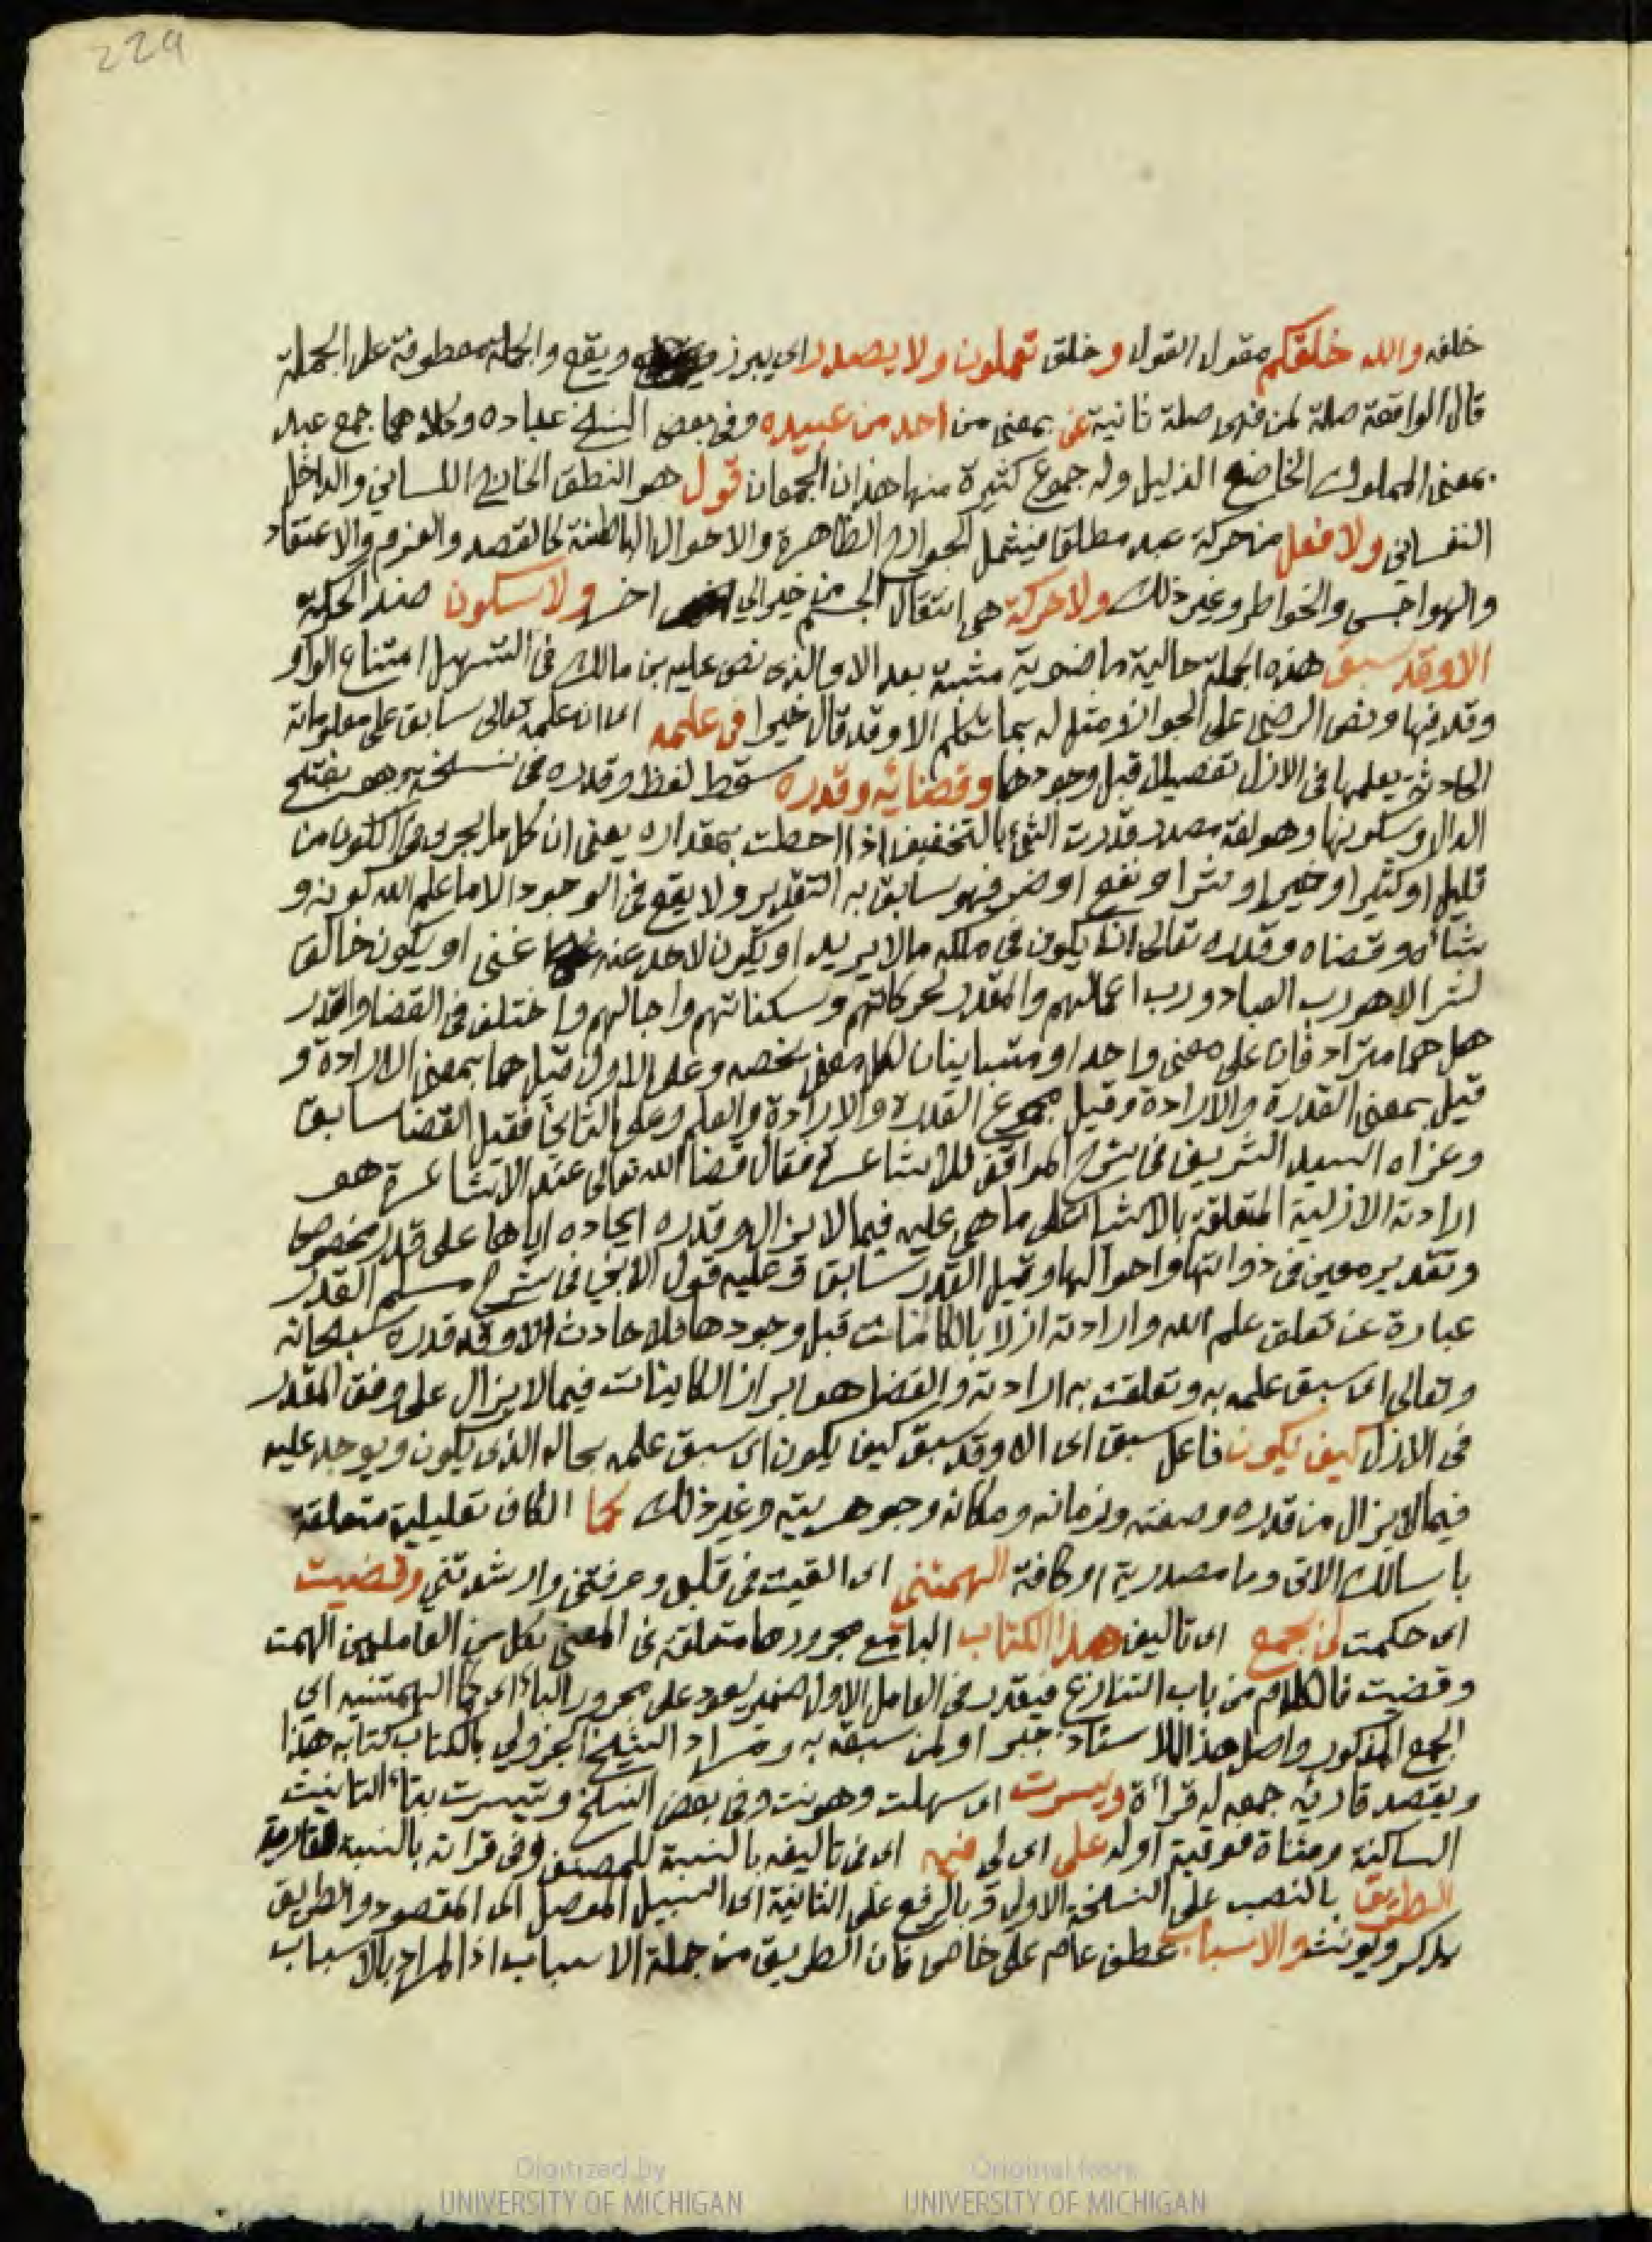 229
خلقه والله خلقكم مقول القول وخلق تعملون ولا يصدر اي يبرز ويقع والجملة معطوفة على الجملة
قال الواقعة صلة لمن فهي صلة ثانية عن بمعنى من احد من عبيده وفي بعض النسخ عباده وكلاهما جمع عبد
بمعنى المملوك الخاضع الذليل وله جموع كثيرة منها هذان الجمعان قول هو النطق الخارج اللساني والداخل
النفساني ولا فعل من حركة عبد مطلقا فيشمل الجوارح الظاهرة والاحوال الباطنة كالقصد والعزم والاعتقاد
والهواجس والخواطر وغير ذلك ولا حركة هي انتقال الجسم من حيز الى اخر ولا سكون ضد الحركة
الا وقد سبق هذه الجملة حالية ماضوية مثبتة بعد الا والذي نص عليه بن مالك في التسهيل امتناع الواو
وقد فيها ونص الرضى على الجواز ومثل له بما تكلم الا وقد قال خيرا في علمه اي انه علمه تعالى سابق على معلوماته
الحادثة يعلمها في الازل تفصيلا قبل وجودها وقضائه وقدره سقط لفظ وقدره في نسخة وهو بفتح
الدال وسكونها وهو لغة مصدر قدرت الشئ بالتخفيف اذا احطت بمقداره يعني ان كل ما يجري في الكون من
قليل او كثير او خير او شر او نفع او ضر فهو سابق به التقدير ولا يقع في الوجود الا ما علم الله كونه و
شاءه وقضاه وقدره تعالى ان يكون في ملكه ما لا يريد او يكون لاحد عنه غنى او يكون خالق
لشر الا هو رب العباد ورب اعمالهم والمقدر لحركاتهم وسكناتهم واجالهم واختلف في القضا والقدر
هل هما مترادفان على معنى واحد او متباينان لكل معنى يخصه وعلى الاول قيل هما بمعنى الارادة و
قيل بمعنى القدرة والارادة وقيل مجموع القدرة والارادة والعلم وعلى الثاني فقيل القضا سابق
وعزاه السيد الشريف في شرح المواقف للاشاعرة فقال قضا الله تعالى عند الاشاعرة هو
ارادته الازلية المتعلقة بالاشيا على ما هي عليه فيما لا يزال وقدره ايجاده اياها على قدر مخصوص
وتقدير معين في ذواتها واحوالها وقيل القدر سابق وعليه قول الابي في شرح مسلم القدر
عبارة عن تعلق علم الله وارادته ازلا بالكائنات قبل وجودها فلا حادث الا وقد قدره سبحانه
وتعالى اي سبق علمه به وتعلقت به ارادته والقضا هو ابراز الكاينات فيما لا يزال على وفق المقدر
في الازل كيف يكون فاعل سبق اي الا وقد سبق كيف يكون اي سبق علمه بحاله الذي يكون ويوجد عليه
فيما لا يزال من قدره وصفته وزمانه ومكانه وجوهريته وغير ذلك كما الكاف تعليلية متعلقة
باسالك الاتي وما مصدرية او كافة الهمتني اي القيت في قلبي وعرفتني وارشدتني وقضيت
اي حكمت لي بجمع اي تاليف هذا الكتاب البا مع مجرورها متعلقة في المعنى بكل من العاملين الهمت
وقضيت فالكلام من باب التنازع فيقدر في العامل الاول ضمير يعود على مجرور الباء اي كما الهمتنيه اي
الجمع المذكور واصل هذا للاستاذ جبر او لمن سبقه به ومراد الشيخ الجزولي بالكتاب كتابه هذا
ويقصد قارئه جمعه له قراءة ويسرت اي سهلت وهونت وفي بعض النسخ وتيسرت بتاء التانيث
الساكنة ومثناة فوقية اوله على اي لي فيه اي في تاليفه بالنسبة للمصنف وفي قراته بالنسبة لقاريه
الطريق بالنصب على النسخة الاولى وبالرفع على الثانية اي السبيل الموصل الى المقصود والطريق
يذكر ويونث والاسباب عطف عام على خاص فان الطريق من جملة الاسباب اذ المراد بالاسباب
Digitized by
UNIVERSITY OF MICHIGAN
Original from
UNIVERSITY OF MICHIGAN